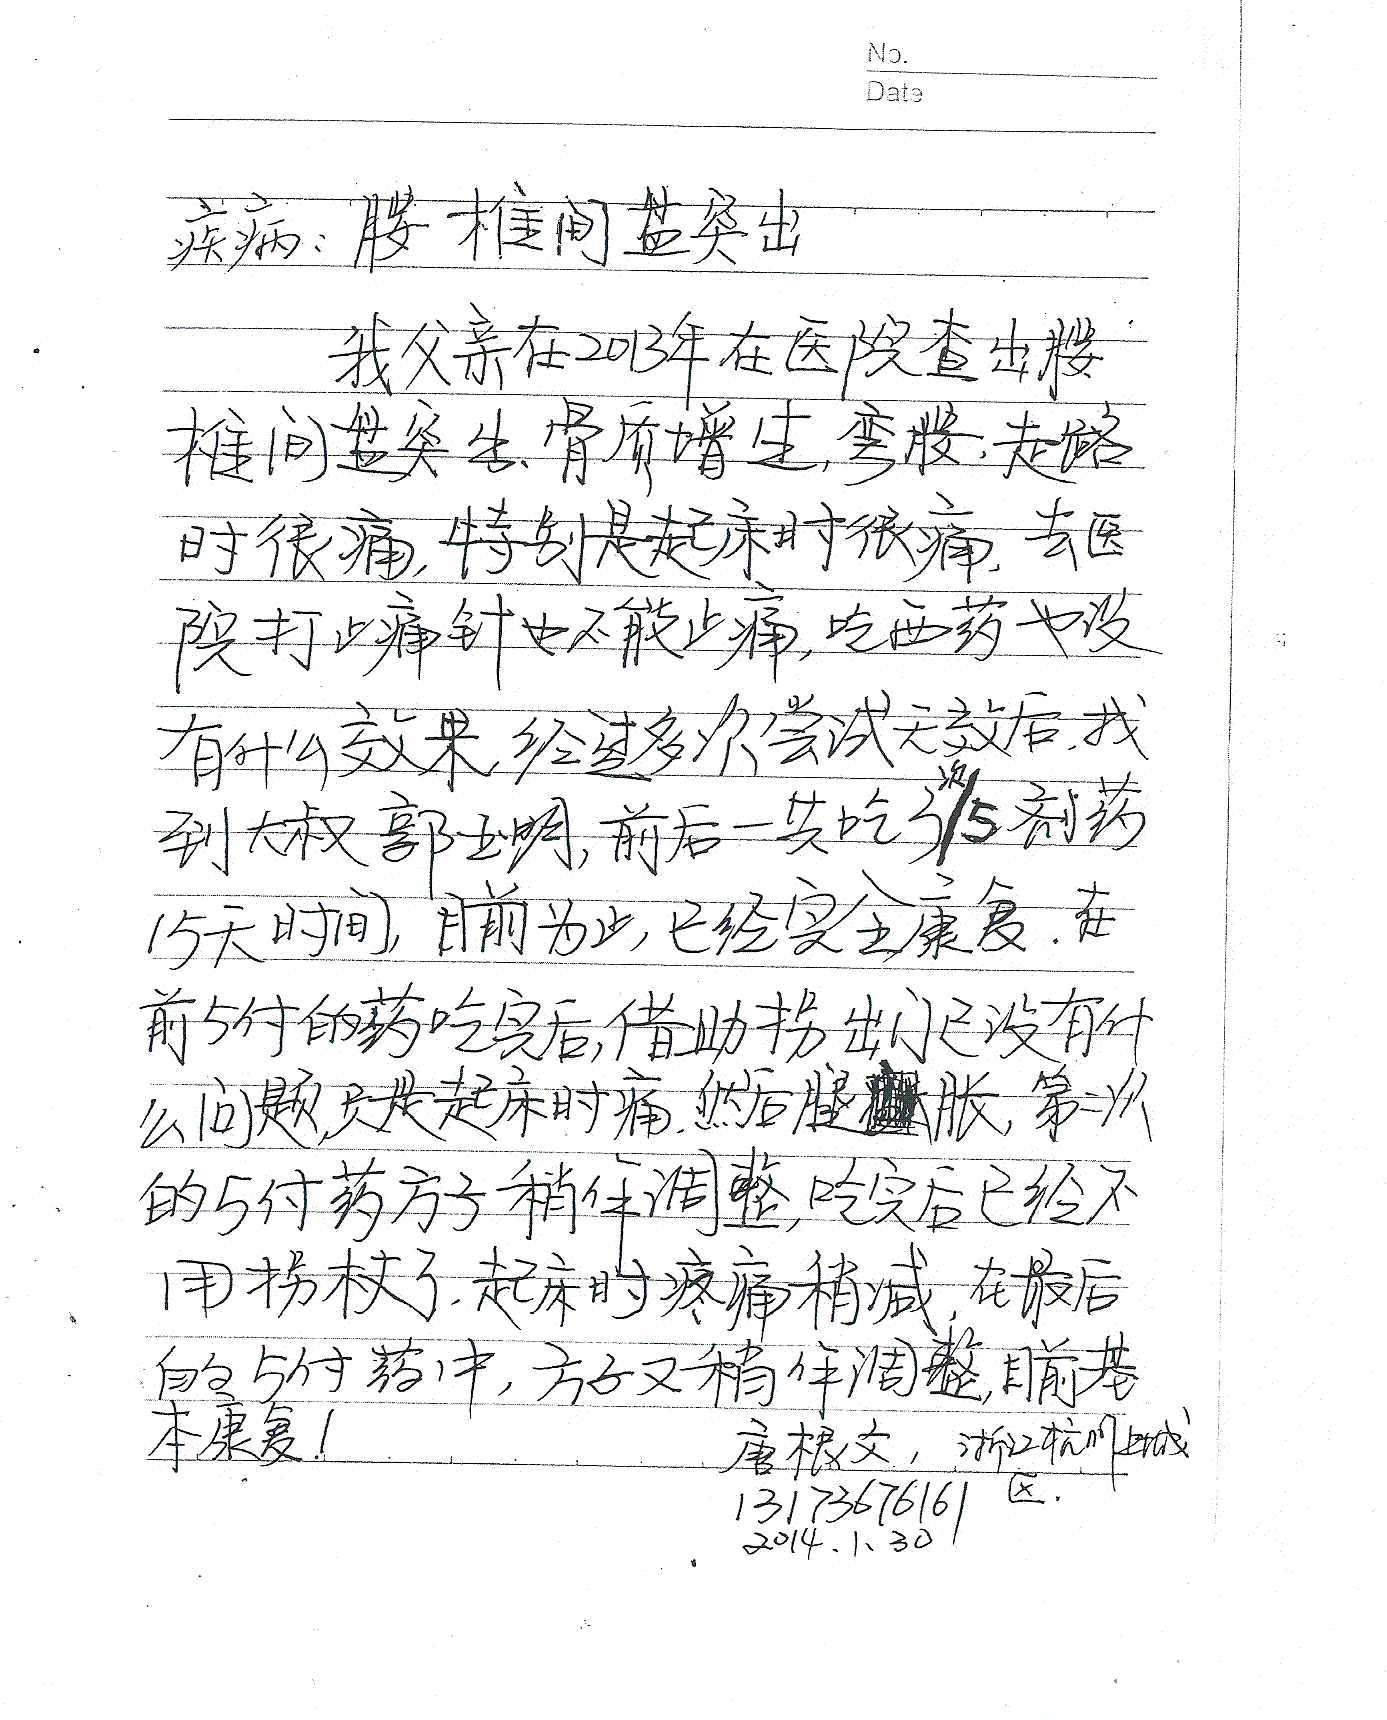 No.
Date
疾病：腰椎间盘突出
我父亲在2013年在医院查出腰
椎间盘突出、骨质增生，弯腰，走路
时很痛，特别是起床时很痛，去医
院打止痛针也不能止痛，吃西药也没
有什么效果，经过多次尝试无效后，找
到大叔郭玉明，前后一共吃了15剂药
15天时间，目前为止，已经完全康复．在
前5付的药吃完后，借助拐出门已没有什
么问题，只是起床时痛．然后腿胀，第二次
的5付药方子稍作调整，吃完后已经不
用拐杖了．起床时疼痛稍减，在最后
的5付药中，方子又稍作调整，目前基
本康复！
唐根文，浙江杭州上城
区．
13173676161
2014.1.30